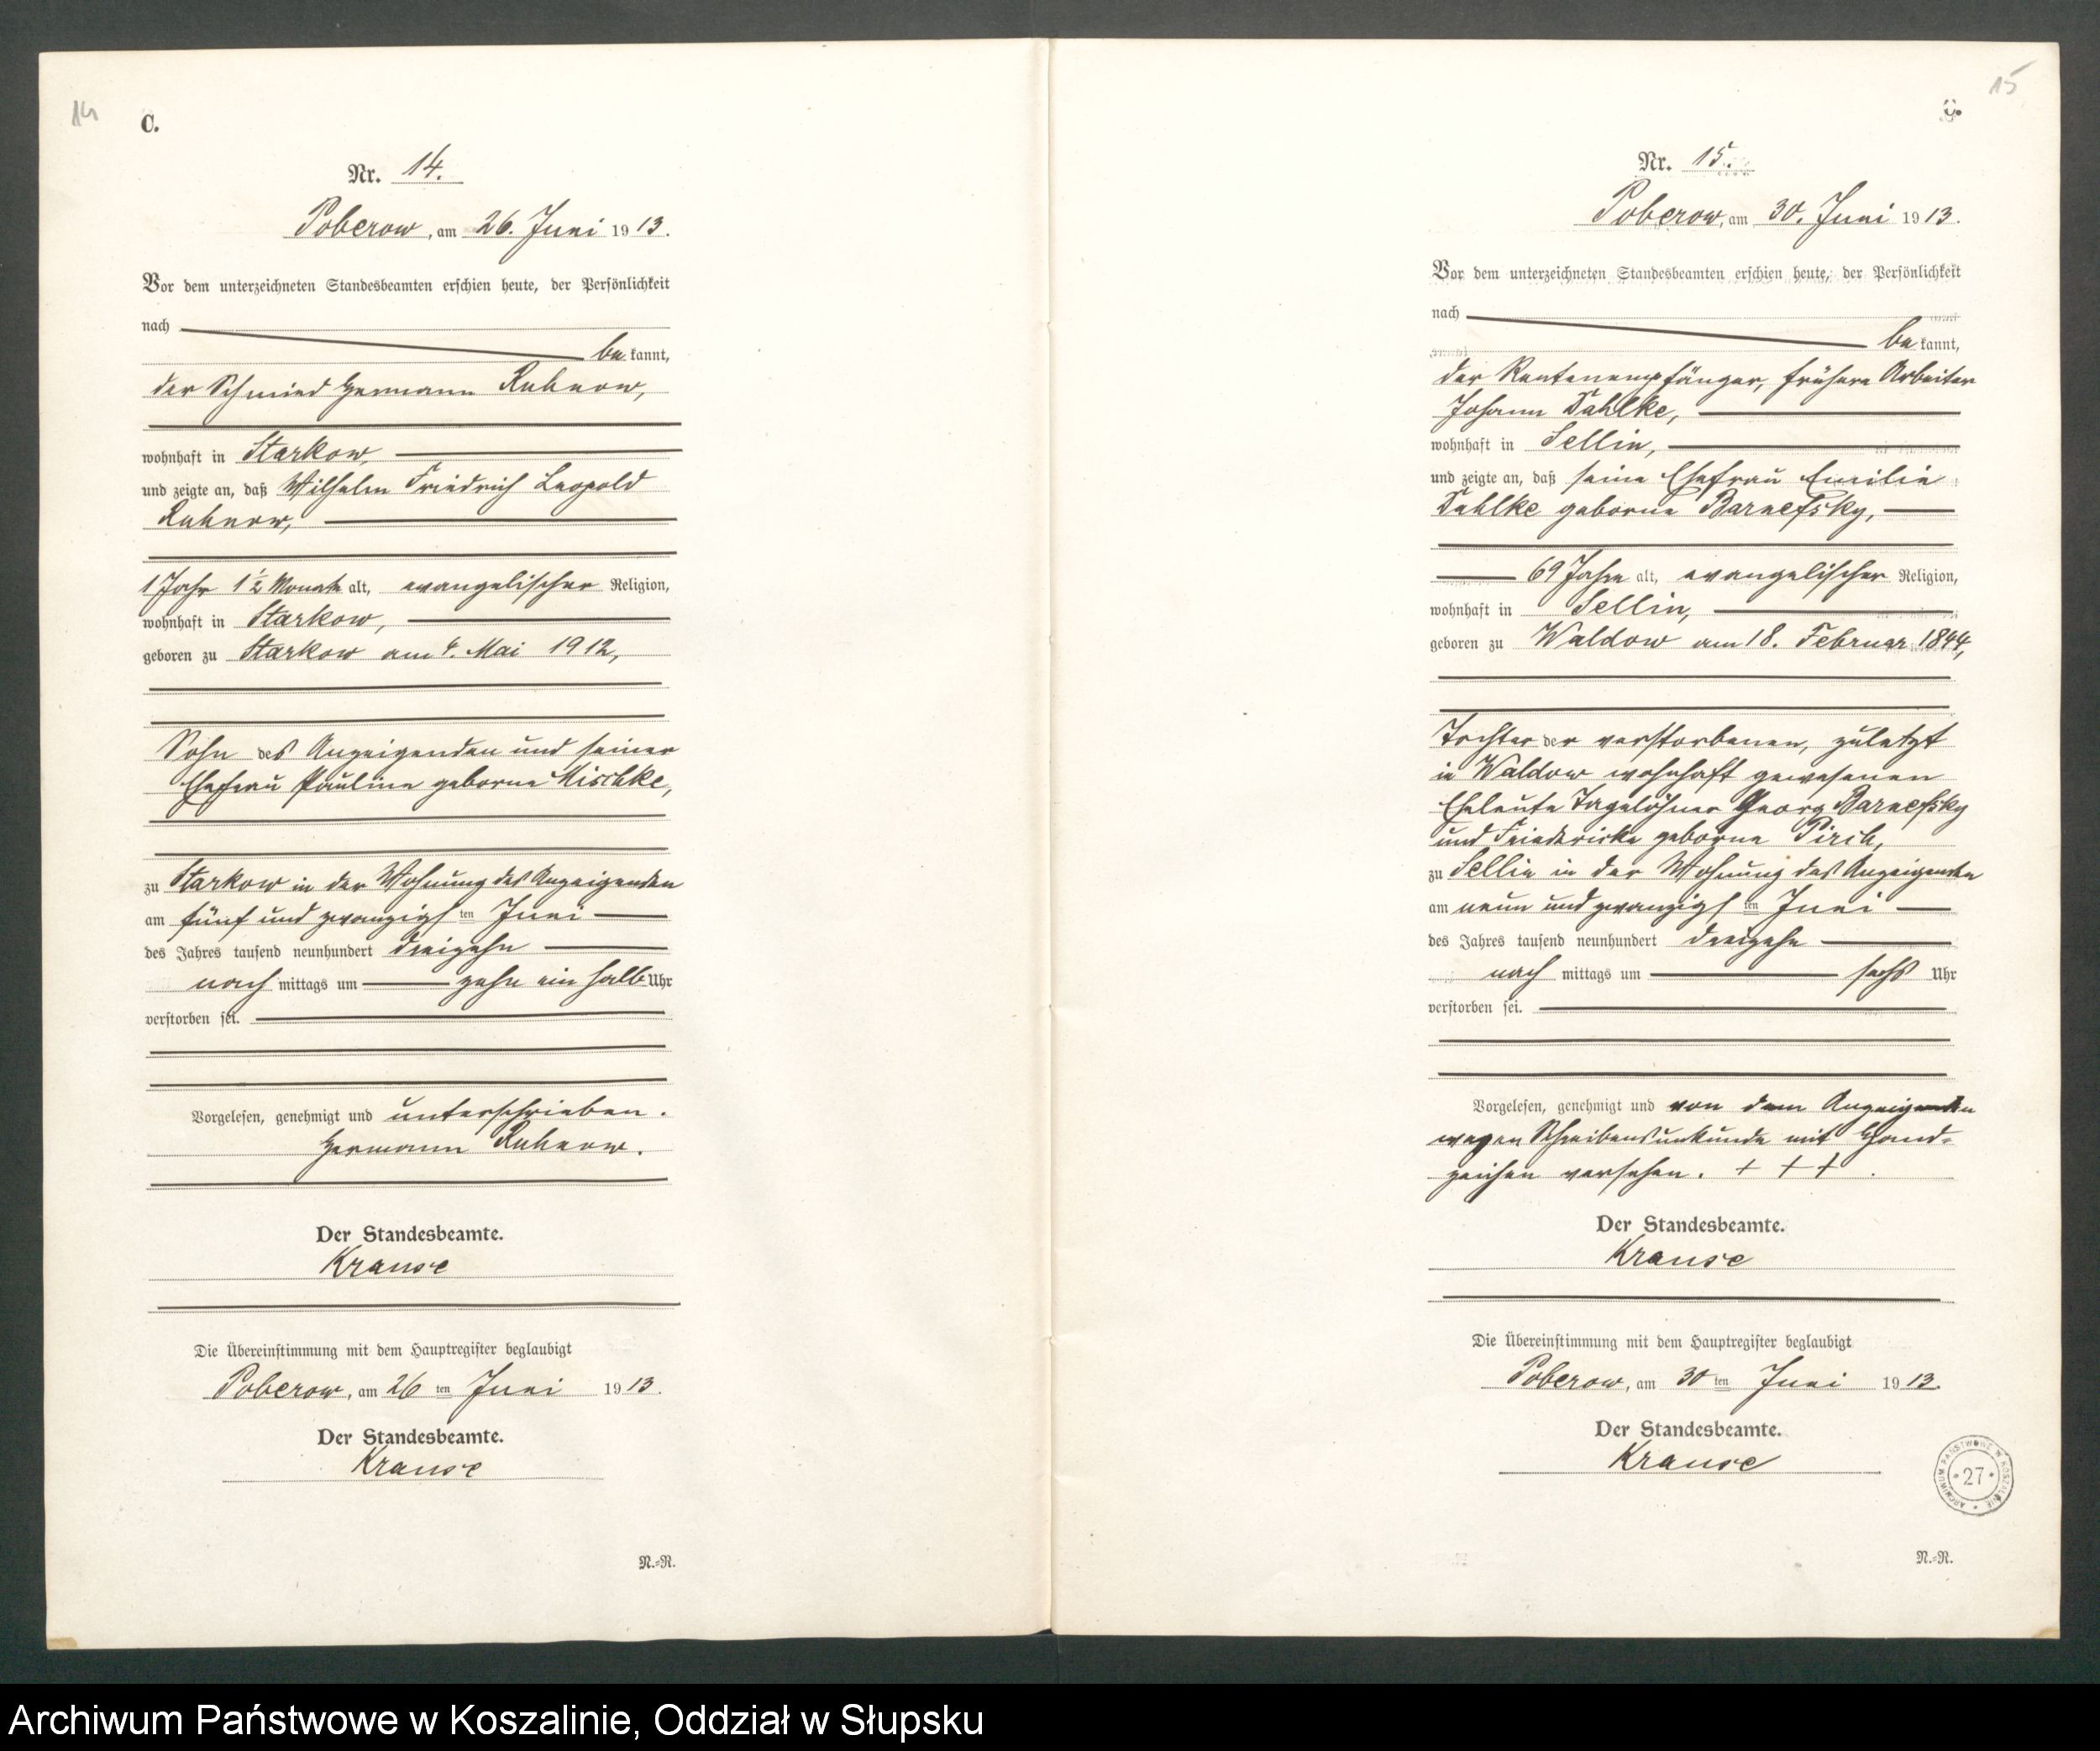 14
C.
Nr. 14.
Poberow, am 26. Juni 1913.
Vor dem unterzeichneten Standesbeamten erschien heute, der Persönlichkeit
nach
be kannt,
der Schmied Hermann Ruhnow,
wohnhaft in Starkow,
und zeigte an, daß Wilhelm Friedrich Leopold
Ruhnow,
1 Jahr 1 1/2 Monate alt, evangelischer Religion,
wohnhaft in Starkow,
geboren zu Starkow am 4. Mai 1912,
Sohn des Anzeigenden und seiner
Ehefrau Pauline geborne Mischke,
zu Starkow in der Wohnung des Anzeigenden
am fünf und zwanzigsten Juni
des Jahres tausend neunhundert dreizehn
nach mittags um zehn ein halb Uhr
verstorben sei.
Vorgelesen, genehmigt und unterschrieben.
Hermann Ruhnow.
Der Standesbeamte.
Krause
Die Übereinstimmung mit dem Hauptregister beglaubigt
Poberow, am 26 ten Juni 1913.
Der Standesbeamte.
Krause
N.-R.
15
C.
Nr. 15.
Poberow, am 30. Juni 1913.
Vor dem unterzeichneten Standesbeamten erschien heute, der Persönlichkeit
nach
be kannt,
der Rentenempfänger, frühere Arbeiter
Johann Dahlke,
wohnhaft in Sellin,
und zeigte an, daß seine Ehefrau Emilie
Dahlke geborne Barnefsky,
69 Jahre alt, evangelischer Religion,
wohnhaft in Sellin,
geboren zu Waldow am 18. Februar 1844,
Tochter der verstorbenen, zuletzt
in Waldow wohnhaft gewesenen
Eheleute Tagelöhner Georg Barnefsky
und Friedericke geborne Pirch,
zu Sellin in der Wohnung des Anzeigenden
am neun und zwanzigsten Juni
des Jahres tausend neunhundert dreizehn
nach mittags um sechs Uhr
verstorben sei.
Vorgelesen, genehmigt und von dem Anzeigenden
wegen Schreibensunkunde mit Hand-
zeichen versehen. + + +
Der Standesbeamte.
Krause
Die Übereinstimmung mit dem Hauptregister beglaubigt
Poberow, am 30 ten Juni 1913.
Der Standesbeamte.
Krause
ARCHIWUM PAŃSTWOWE W KOSZALINIE
27
N.-R.
Archiwum Państwowe w Koszalinie, Oddział w Słupsku